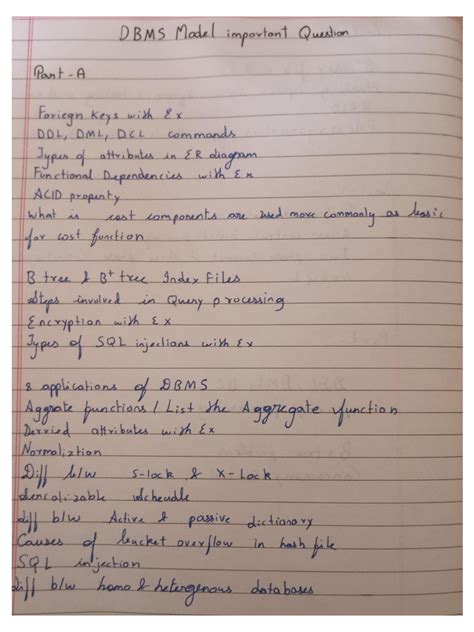 DBMS Model important Question
Part-A
Foriegn Keys with Ex
DDL, DML, DCL commands
Types of attributes in ER diagram
Functional Dependencies with Ex
ACID property
What is cost components are used more commonly as basic
for cost function
B tree & B+ tree Index Files
Steps involved in Query processing
Encryption with Ex
Types of SQL injections with Ex
8 applications of DBMS
Aggrate functions / List the Aggregate function
Derried attributes with Ex
Normaliztion
Diff b/w S-lock & X-Lock
diff b/w Active & passive dictionary
Causes of bucket overflow in hash file
SQL injection
diff b/w homo & hetergenous databases